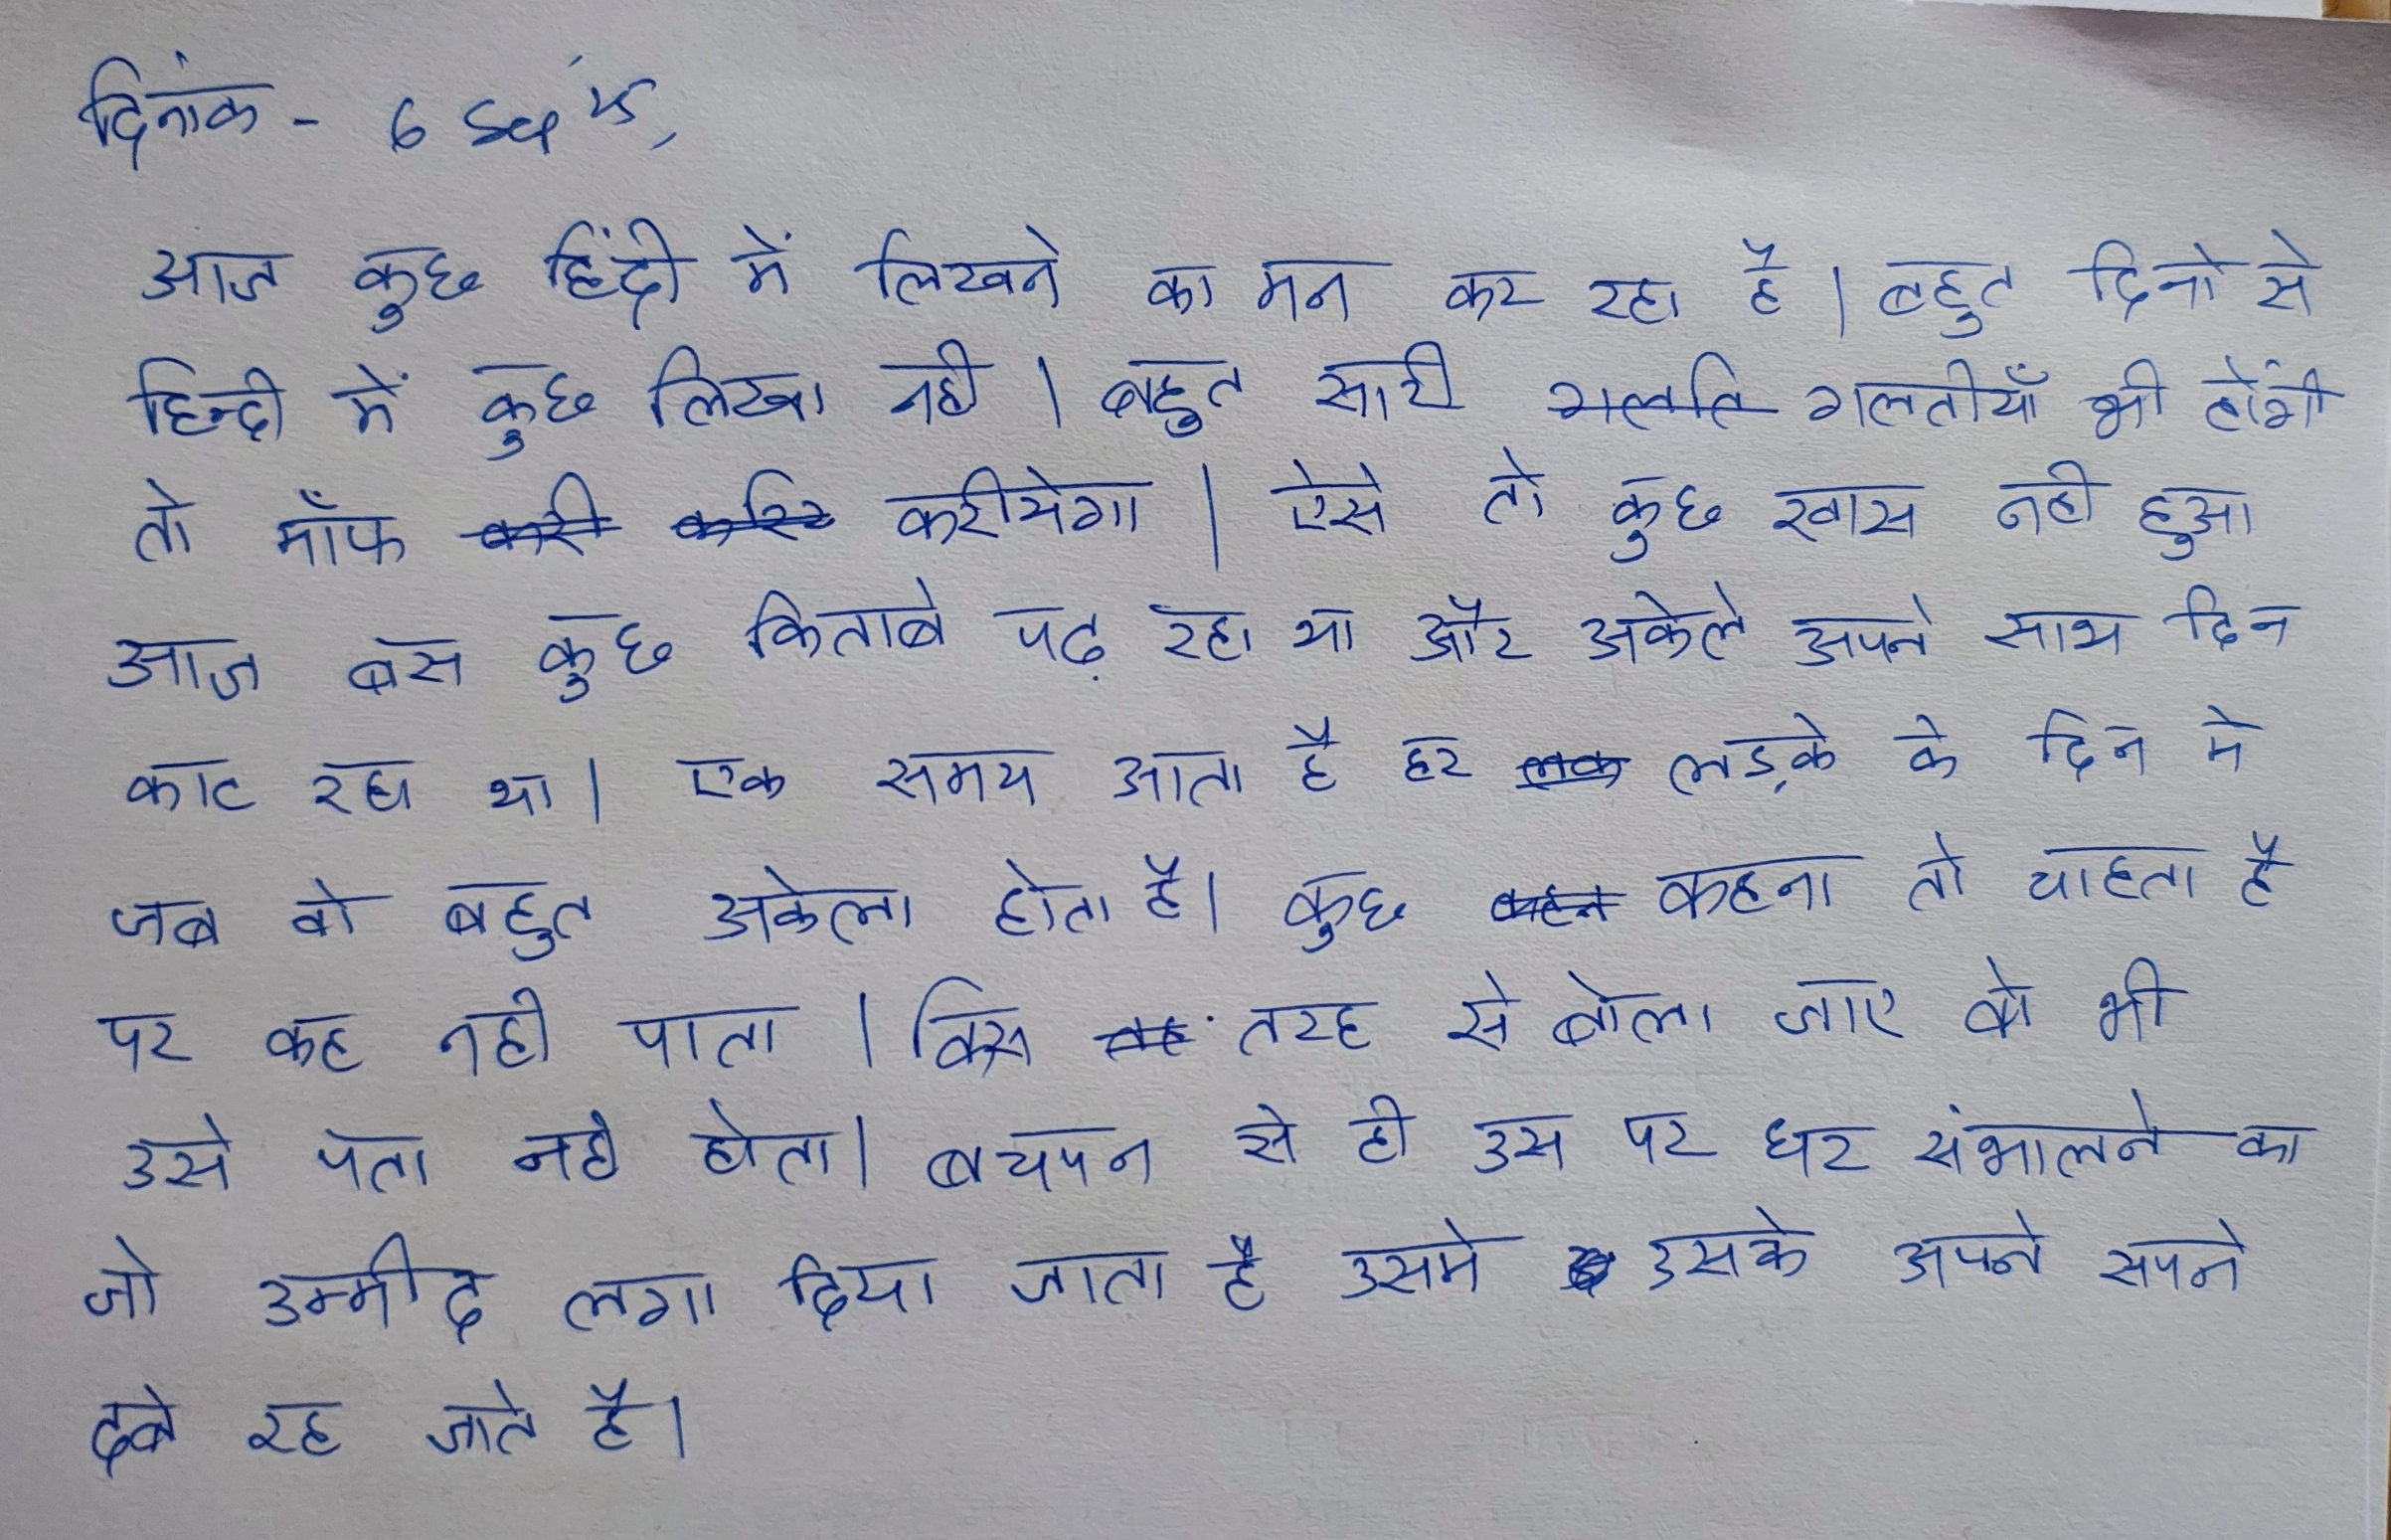 दिनांक - 6 Sep
आज कुछ हिंदी में लिखने का मन कर रहा है । बहुत दिनो से
हिन्दी में कुछ लिखा नही । बहुत सारी गलति गलतीयाँ भी होंगी
तो माँफ करी करि करीयेगा । ऐसे तो कुछ खास नही हुआ
आज बस कुछ किताबे पढ़ रहा था और अकेले अपने साथ दिन
काट रहा था । एक समय आता है हर लक लड़के के दिन मे
जब वो बहुत अकेला होता है । कुछ कहन कहना तो चाहता है
पर कह नही पाता । किस तरह से बोला जाए वो भी
उसे पता नही होता । बचपन से ही उस पर घर संभालने का
जो उम्मीद लगा दिया जाता है उसमे उसके अपने सपने
दबे रह जाते है ।